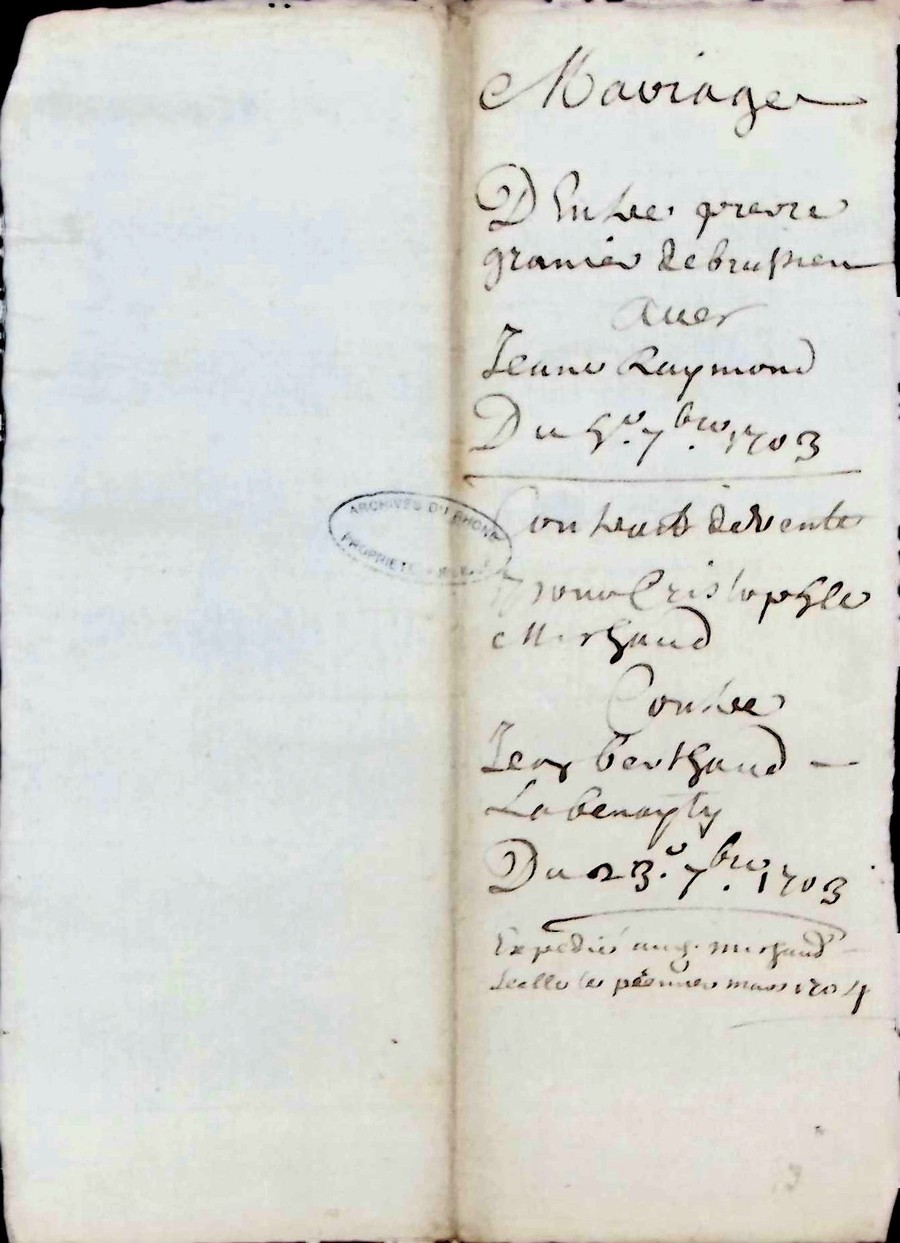 Mariage
D'Entre pierre
granier de brussieu
avec
Jeanne Raymond
Du 5e. 7bre. 1703
ARCHIVES DU RHONE
PROPRIETE
Contract de vente
pour Cristophle
Michaud
Contre
Jean berthaud
La benoyty
Du 23e. 7bre. 1703
Expedié aud. michaud
Scellé le premier mars 1704